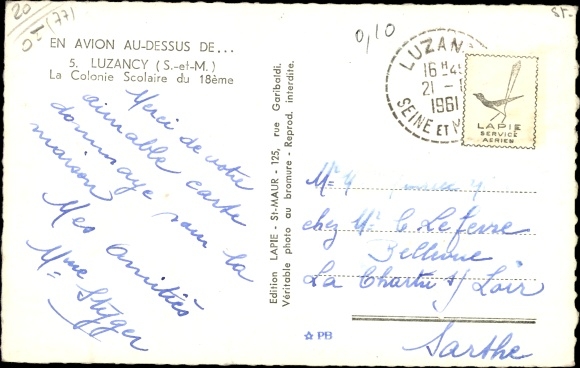 20
(77)
EN AVION AU-DESSUS DE...
5. LUZANCY (S.-et-M.)
La Colonie Scolaire du 18ème
Merci de votre
aimable carte
dommage pour la
maison
Mes Amitiés
Mme Styger
Edition LAPIE - St-MAUR - 125, rue Garibaldi.
Véritable photo au bromure - Reprod. interdite.
PB
0,10
LUZAN
16 H 45
21 -
1961
SEINE ET M
LAPIE
SERVICE
AERIEN
chez Mr C Lefevre
Bellevue
La Chartre s/ Loir
Sarthe